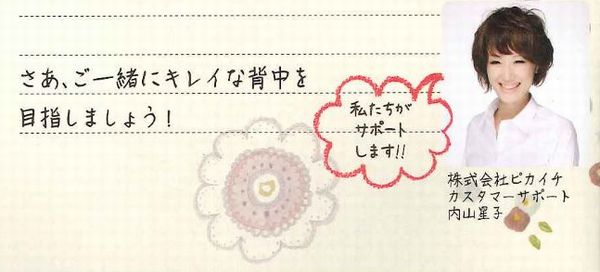 さあ、ご一緒にキレイな背中を
目指しましょう！
私たちが
サポート
します!!
株式会社ピカイチ
カスタマーサポート
内山星子